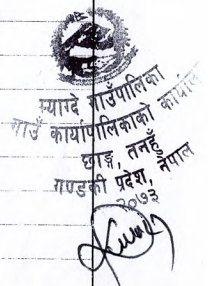 म्याग्दे गाउँपालिका
गाउँ कार्यापालिकाको कार्यालय
छाङ्ग, तनहुँ
गण्डकी प्रदेश, नेपाल
२०७३